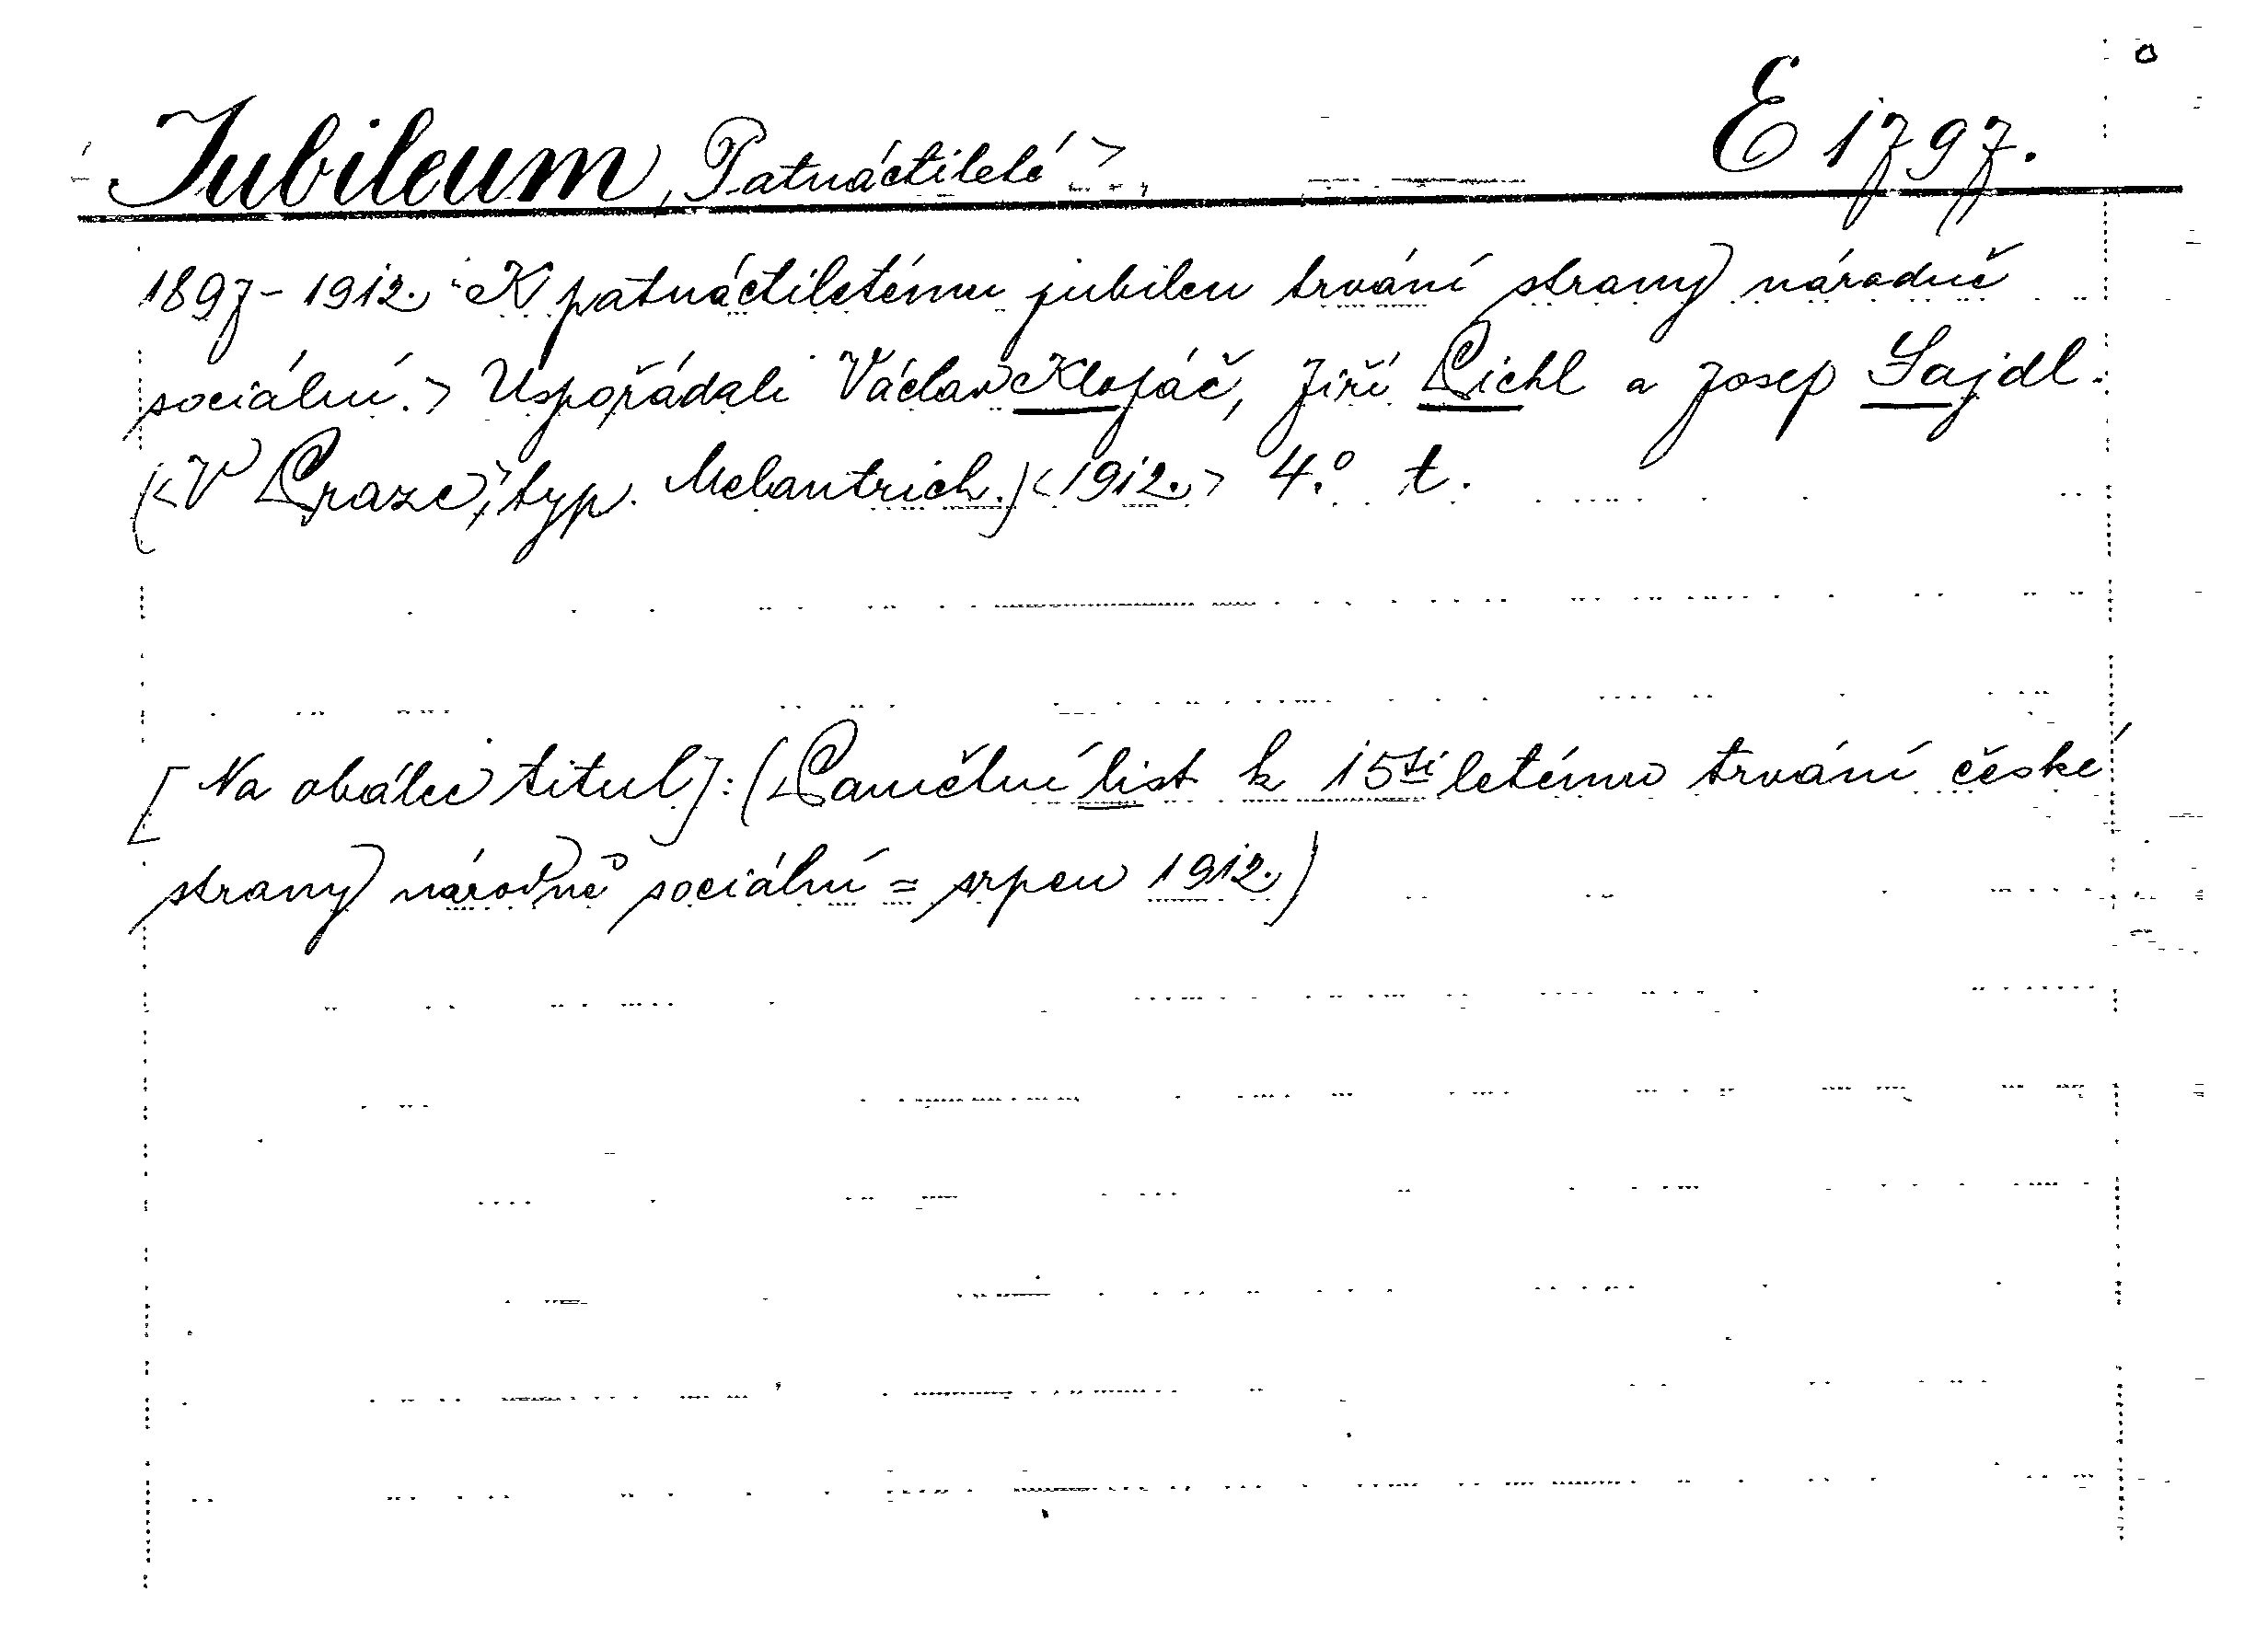 Jubileum, Patnáctileté > E 1797.
1897-1912. K patnáctiletému jubileu trvání strany národně
sociální. > Uspořádali Václav Klofáč, Jiří Pichl a Josep Sajdl.
(<V Praze, typ. Melantrich.) <1912.> 4.° t.
[Na obálce titul]: (Památní list k 15ti letému trvání české
strany národně sociální = srpen 1912.)